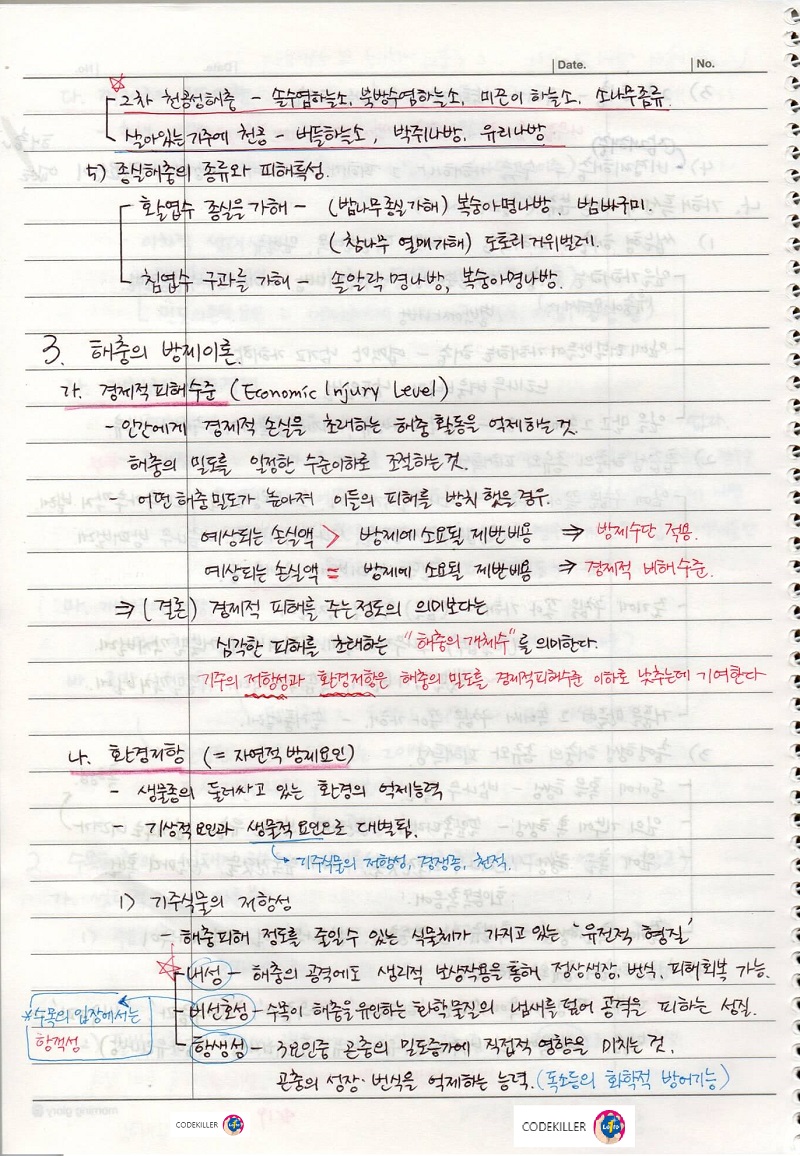 Date.
No.
☆ 2차 천공성해충 - 솔수염하늘소, 북방수염하늘소, 미끈이 하늘소, 소나무좀류.
살아있는 기주에 천공 - 버들하늘소, 박쥐나방, 유리나방
5) 종실해충의 종류와 피해특성.
활엽수 종실을 가해 - (밤나무종실가해) 복숭아명나방, 밤바구미.
(참나무 열매가해) 도토리거위벌레.
침엽수 구과를 가해 - 솔알락명나방, 복숭아명나방.
3. 해충의 방제이론.
가. 경제적 피해수준 (Economic Injury Level)
- 인간에게 경제적 손실을 초래하는 해충 활동을 억제하는 것.
해충의 밀도를 일정한 수준이하로 조절하는 것.
- 어떤 해충밀도가 높아져 이들의 피해를 방치 했을 경우.
예상되는 손실액 > 방제에 소요될 제반비용 ⇒ 방제수단 적용.
예상되는 손실액 = 방제에 소요될 제반비용 ⇒ 경제적 피해수준.
⇒ (결론) 경제적 피해를 주는정도의 의미보다는
심각한 피해를 초래하는 "해충의 개체수"를 의미한다.
기주의 저항성과 환경저항은 해충의 밀도를 경제적피해수준 이하로 낮추는데 기여한다
나. 환경저항 (= 자연적 방제요인)
- 생물종의 둘러싸고 있는 환경의 억제능력
- 기상적요인과 생물적 요인으로 대별됨.
기주식물의 저항성, 경쟁종, 천적.
1) 기주식물의 저항성
- 해충피해 정도를 줄일수 있는 식물체가 가지고 있는 '유전적 형질'
☆ 내성 - 해충의 공격에도 생리적 보상작용을 통해 정상생장, 번식, 피해회복 가능.
비선호성 - 수목이 해충을 유인하는 화학물질의 냄새를 덜어 공격을 피하는 성질.
*수목의 입장에서는
항객성
항생성 - 3요인중 곤충의 밀도증가에 직접적 영향을 미치는 것.
곤충의 성장·번식을 억제하는 능력. (독소등의 화학적 방어기능)
morning glory
CODEKILLER
CODEKILLER